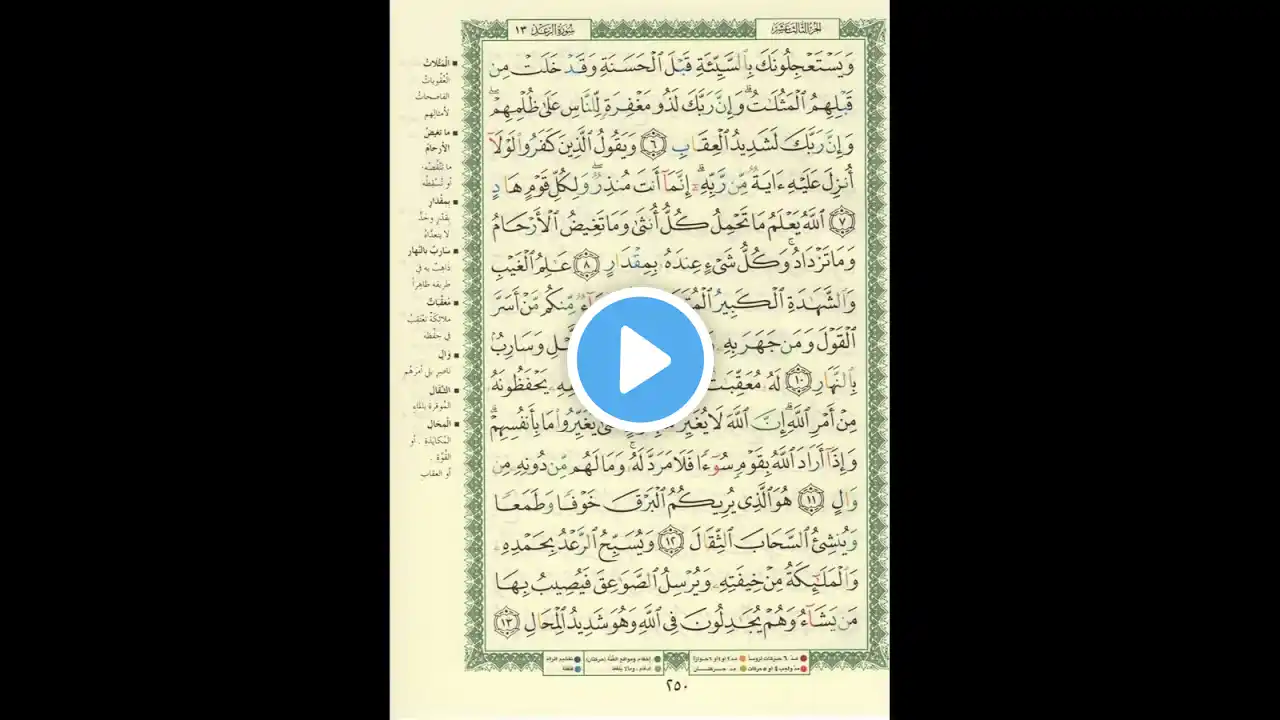 الجزء الثالث عشر
سورة الرعد ١٣
وَيَسْتَعْجِلُونَكَ بِٱلسَّيِّئَةِ قَبْلَ ٱلْحَسَنَةِ وَقَدْ خَلَتْ مِن
قَبْلِهِمُ ٱلْمَثُلَٰتُ ۗ وَإِنَّ رَبَّكَ لَذُو مَغْفِرَةٍ لِّلنَّاسِ عَلَىٰ ظُلْمِهِمْ ۖ
وَإِنَّ رَبَّكَ لَشَدِيدُ ٱلْعِقَابِ ٦ وَيَقُولُ ٱلَّذِينَ كَفَرُوا۟ لَوْلَآ
أُنزِلَ عَلَيْهِ ءَايَةٌ مِّن رَّبِّهِۦٓ ۗ إِنَّمَآ أَنتَ مُنذِرٌ ۖ وَلِكُلِّ قَوْمٍ هَادٍ
٧ ٱللَّهُ يَعْلَمُ مَا تَحْمِلُ كُلُّ أُنثَىٰ وَمَا تَغِيضُ ٱلْأَرْحَامُ
وَمَا تَزْدَادُ ۖ وَكُلُّ شَىْءٍ عِندَهُۥ بِمِقْدَارٍ ٨ عَٰلِمُ ٱلْغَيْبِ
وَٱلشَّهَٰدَةِ ٱلْكَبِيرُ مِّنكُم مَّنْ أَسَرَّ
ٱلْقَوْلَ وَمَن جَهَرَ بِهِۦ وَسَارِبٌۢ
بِٱلنَّهَارِ ١٠ لَهُۥ يَحْفَظُونَهُۥ
مِنْ أَمْرِ ٱللَّهِ ۗ إِنَّ ٱللَّهَ لَا يُغَيِّرُ يُغَيِّرُوا۟ مَا بِأَنفُسِهِمْ ۗ
وَإِذَآ أَرَادَ ٱللَّهُ بِقَوْمٍ سُوٓءًا فَلَا مَرَدَّ لَهُۥ ۚ وَمَا لَهُم مِّن دُونِهِۦ مِن
وَالٍ ١١ هُوَ ٱلَّذِى يُرِيكُمُ ٱلْبَرْقَ خَوْفًا وَطَمَعًا
وَيُنشِئُ ٱلسَّحَابَ ٱلثِّقَالَ ١٢ وَيُسَبِّحُ ٱلرَّعْدُ بِحَمْدِهِۦ
وَٱلْمَلَٰٓئِكَةُ مِنْ خِيفَتِهِۦ وَيُرْسِلُ ٱلصَّوَٰعِقَ فَيُصِيبُ بِهَا
مَن يَشَآءُ وَهُمْ يُجَٰدِلُونَ فِى ٱللَّهِ وَهُوَ شَدِيدُ ٱلْمِحَالِ ١٣
المَثُلاتُ
العُقُوباتُ
الفاضحاتُ
لأمثالِهم
ما تَغيضُ
الأرحامُ
ما تَنْقُصُه
أو تُسْقِطُه
بِمقدارٍ
بقَدَرٍ وحَدٍّ
لا يتعدَّاهُ
سَارِبٌ بالنَّهارِ
ذاهبٌ به في
طريقه ظاهِراً
مُعَقِّباتٌ
ملائكةٌ تعتقبُ
في حِفْظه
والٍ
ناصرٍ يلي أمرَهُم
الثِّقالَ
المُوقَرةَ بالماءِ
المِحَالِ
المُكايَدةِ . أو
القُوَّةِ .
أو العقابِ
٢٥٠